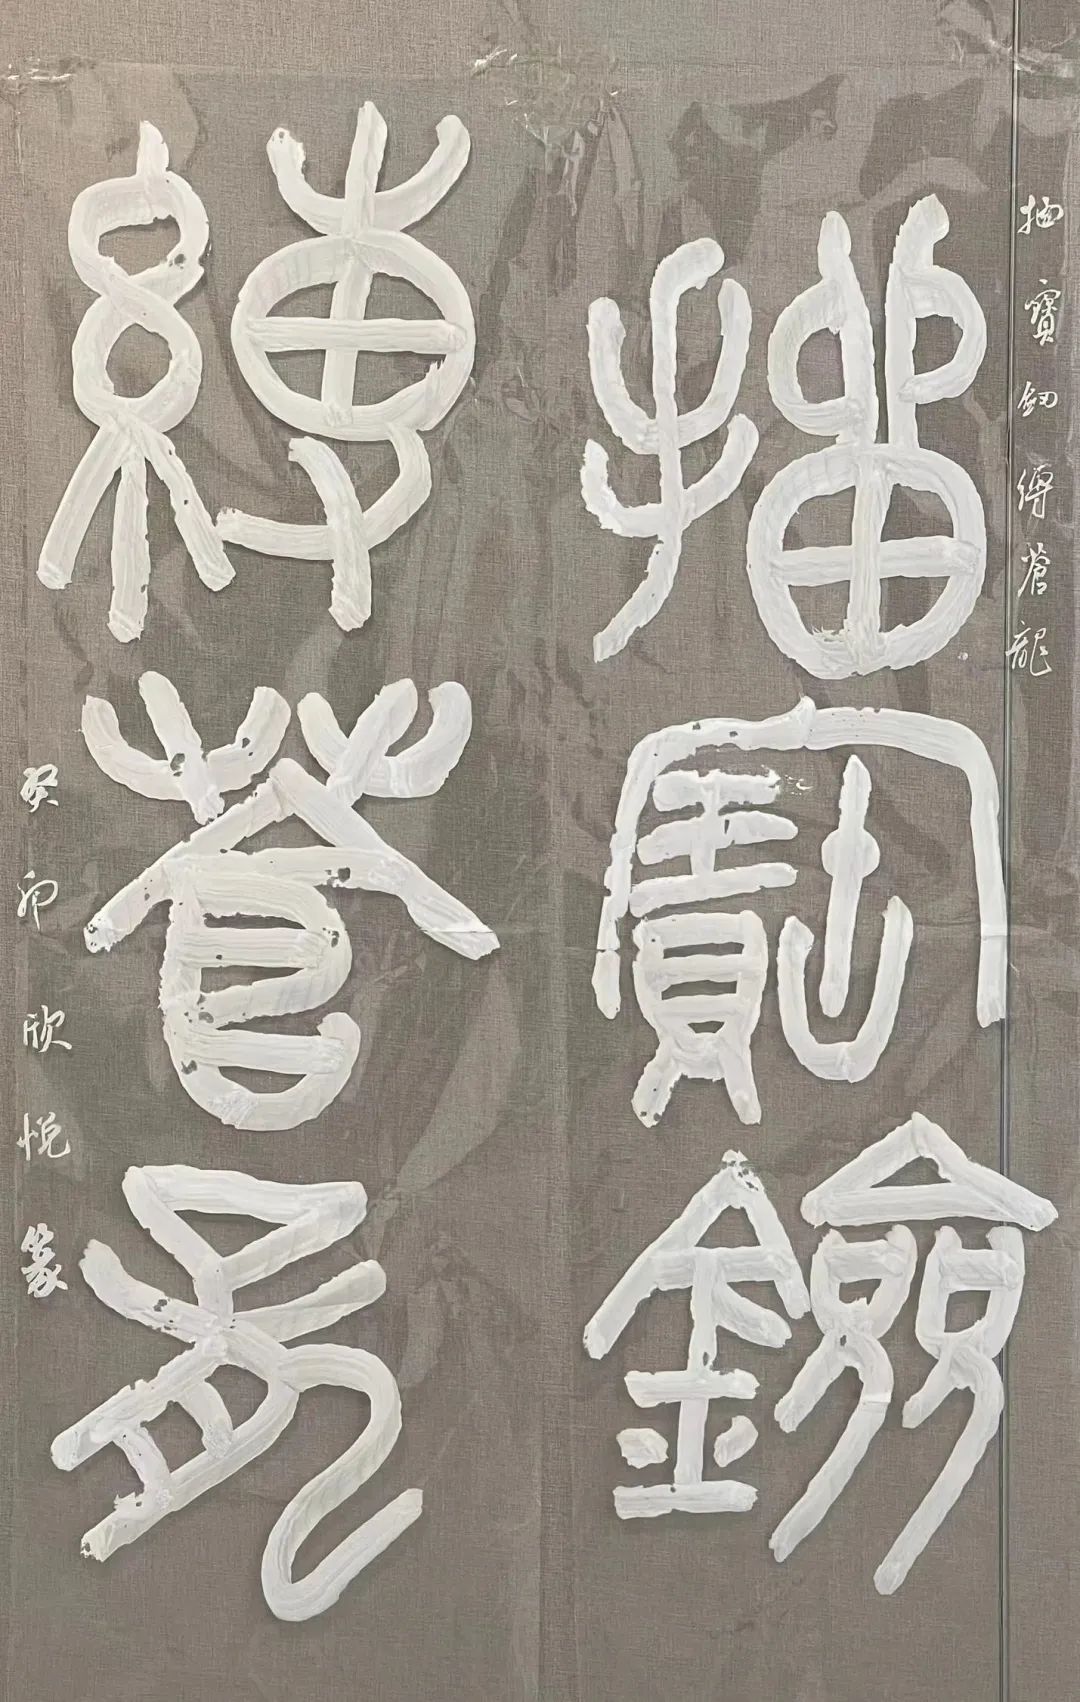 抽寶釼縛蒼龍
抽寶鐱
縛蒼龍
癸卯欣悦篆